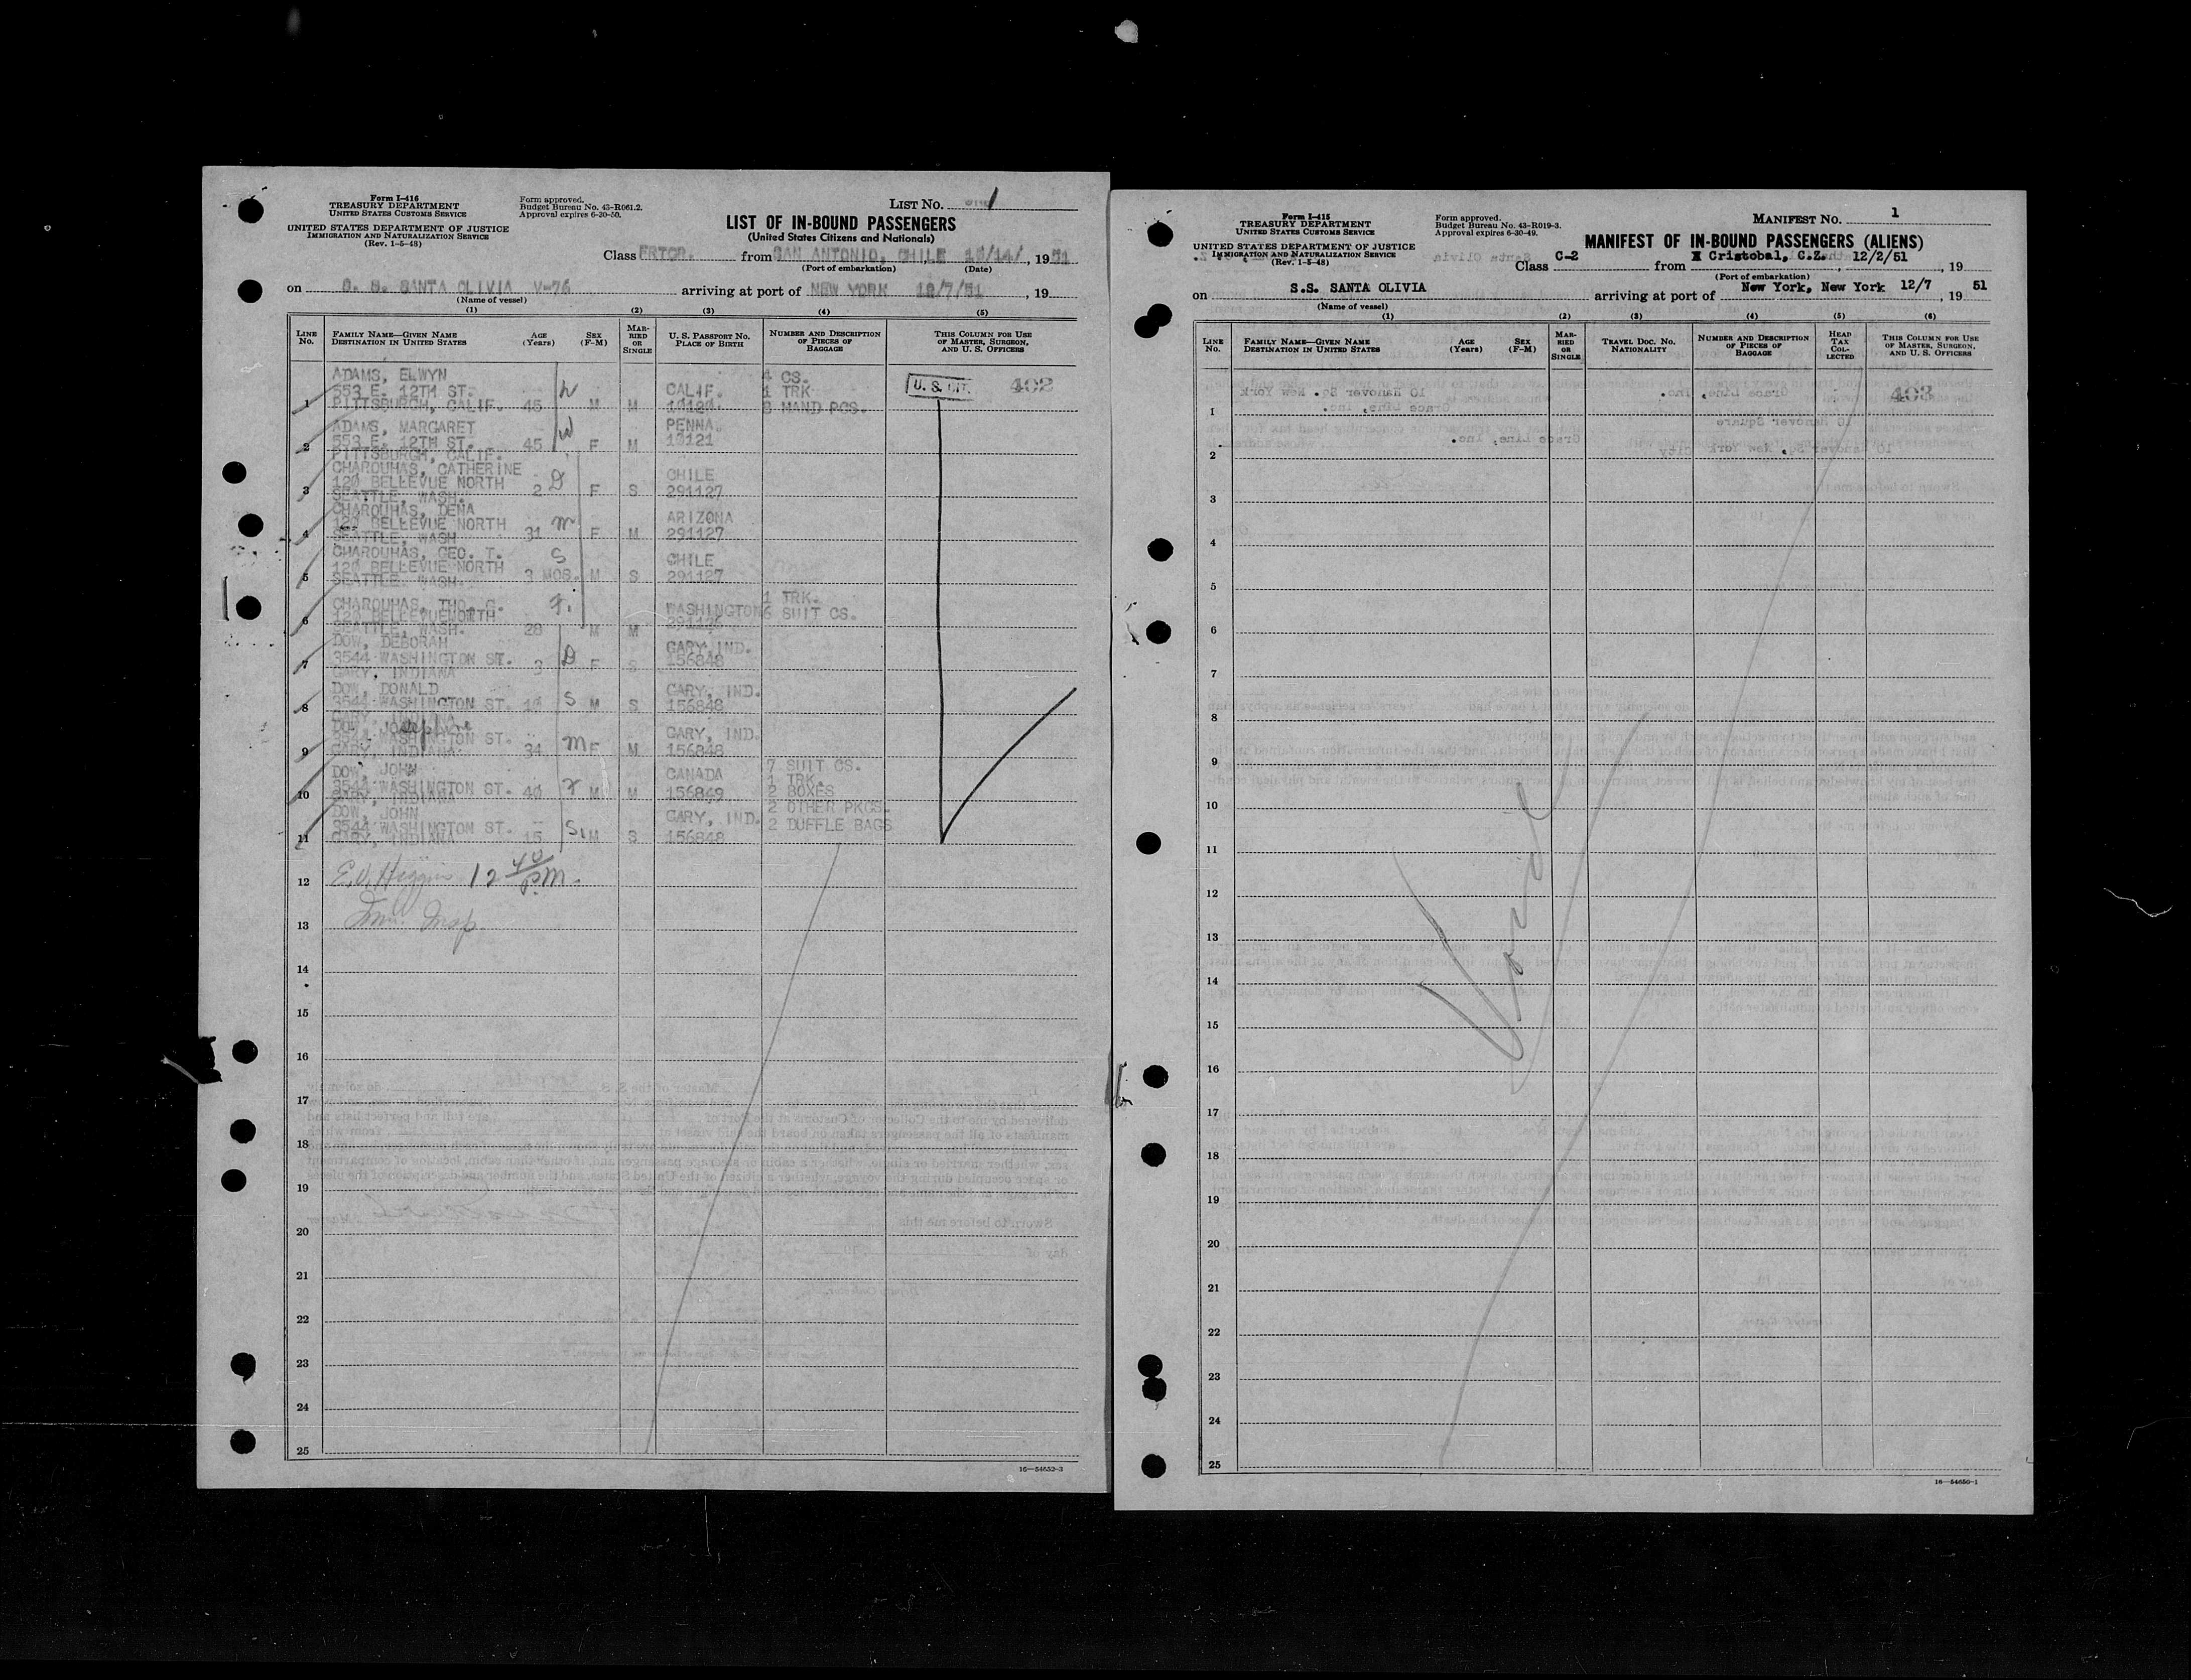 Form I-416
TREASURY DEPARTMENT
UNITED STATES CUSTOMS SERVICE
UNITED STATES DEPARTMENT OF JUSTICE
IMMIGRATION AND NATURALIZATION SERVICE
(Rev. 1-5-48)
Form approved.
Budget Bureau No. 43-R061.2.
Approval expires 6-30-50.
LIST No. 1
LIST OF IN-BOUND PASSENGERS
(United States Citizens and Nationals)
Class FRTGR. from SAN ANTONIO, CHILE , 19 51
(Port of embarkation) (Date)
on S. S. SANTA OLIVIA V-76 arriving at port of NEW YORK 12/7/51 , 19
(Name of vessel)
(1) (2) (3) (4) (5)
LINE No. FAMILY NAME—GIVEN NAME DESTINATION IN UNITED STATES AGE (Years) SEX (F-M) MARRIED OR SINGLE U. S. PASSPORT No. PLACE OF BIRTH NUMBER AND DESCRIPTION OF PIECES OF BAGGAGE THIS COLUMN FOR USE OF MASTER, SURGEON, AND U. S. OFFICERS
ADAMS, ELWYN 4 CS.
553 E. 12TH ST. CALIF. 1 TRK U. S. CIT. 402
1 PITTSBURGH, CALIF. 45 M M 10120 8 HAND PCS.
ADAMS, MARGARET W PENNA.
2 553 E. 12TH ST. 45 F M 10121
PITTSBURGH, CALIF.
CHAROUHAS, CATHERINE CHILE
3 120 BELLEVUE NORTH 2 D F S 291127
SEATTLE, WASH.
CHAROUHAS, DENA ARIZONA
4 120 BELLEVUE NORTH 31 M F M 291127
SEATTLE, WASH
CHAROUHAS, GEO. T. S CHILE
120 BELLEVUE NORTH
5 SEATTLE, WASH. 3 MOS. M S 291127
CHAROUHAS, THO. G. F. WASHINGTON 1 TRK.
6 120 BELLEVUENORTH 291126 6 SUIT CS.
SEATTLE, WASH. 28 M M
DOW, DEBORAH GARY, IND.
7 3544 WASHINGTON ST. 3 D F S 156848
GARY, INDIANA
DOW, DONALD GARY, IND.
8 3544 WASHINGTON ST. 10 S M S 156848
DOW, Josephine
3544 WASHINGTON ST. GARY, IND.
9 GARY, INDIANA 34 M F M 156848
DOW, JOHN CANADA 7 SUIT CS.
1 TRK.
10 3544 WASHINGTON ST. 40 F M M 156849 2 BOXES
GARY, INDIANA 2 OTHER PKGS.
DOW, JOHN
3544 WASHINGTON ST. GARY, IND. 2 DUFFLE BAGS
11 GARY, INDIANA 15 S. M S 156848
12 E.V. Higgins 12 40 P.M.
13 Imm. Insp.
14
15
16
17
18
19
20
21
22
23
24
25
16—54652-3
Form I-415
TREASURY DEPARTMENT
UNITED STATES CUSTOMS SERVICE
UNITED STATES DEPARTMENT OF JUSTICE
IMMIGRATION AND NATURALIZATION SERVICE
(Rev. 1-5-48)
Form approved.
Budget Bureau No. 43-R019-3.
Approval expires 6-30-49.
MANIFEST No. 1
MANIFEST OF IN-BOUND PASSENGERS (ALIENS)
Class C-2 from X Cristobal, C.Z. , 12/2/51 , 19
(Port of embarkation)
on S.S. SANTA OLIVIA arriving at port of New York, New York 12/7 , 19 51
(Name of vessel)
(1) (2) (3) (4) (5) (6)
LINE No. FAMILY NAME—GIVEN NAME DESTINATION IN UNITED STATES AGE (Years) SEX (F-M) MARRIED OR SINGLE TRAVEL DOC. No. NATIONALITY NUMBER AND DESCRIPTION OF PIECES OF BAGGAGE HEAD TAX COLLECTED THIS COLUMN FOR USE OF MASTER, SURGEON, AND U. S. OFFICERS
403
1
2
3
4
5
6
7
8
9
10
11
12
13
14
15
16
17
18
19
20
21
22
23
24
25
Void
16—54650-1